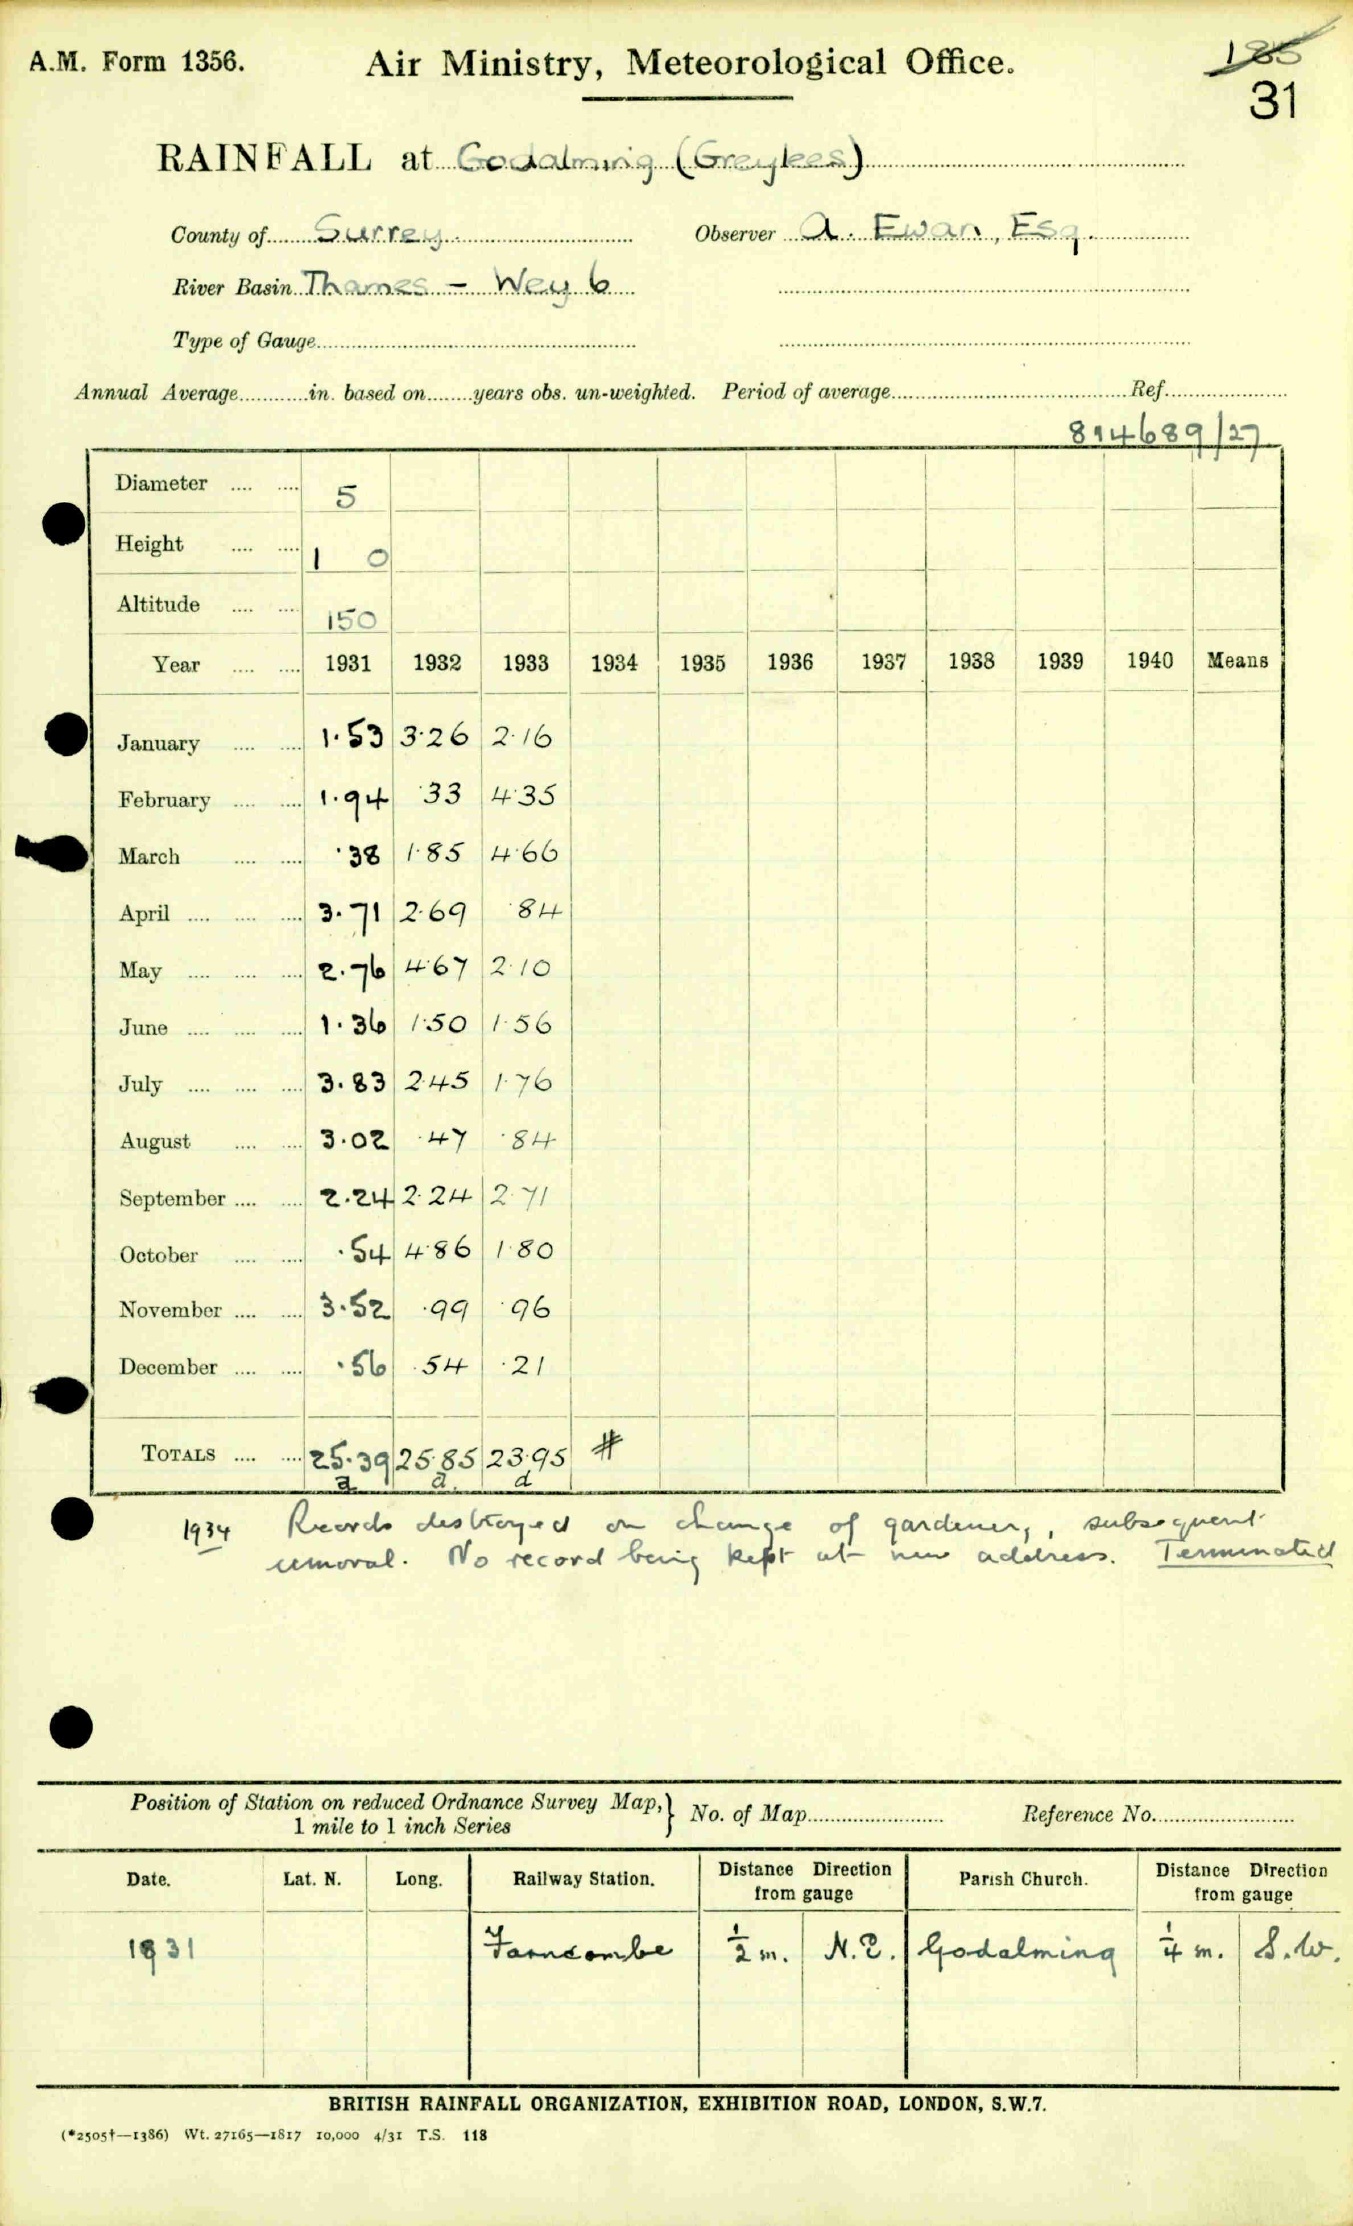 A.M. Form 1356.
Air Ministry, Meteorological Office.
185
31
RAINFALL at Godalming (Greylees)
County of Surrey. Observer A. Ewan, Esq.
River Basin Thames - Wey 6
Type of Gauge
Annual Average in. based on years obs. un-weighted. Period of average Ref.
814689/27
Diameter 5
Height 1 0
Altitude 150
Year 1931 1932 1933 1934 1935 1936 1937 1938 1939 1940 Means
January 1.53 3.26 2.16
February 1.94 .33 4.35
March .38 1.85 4.66
April 3.71 2.69 .84
May 2.76 4.67 2.10
June 1.36 1.50 1.56
July 3.83 2.45 1.76
August 3.02 .47 .84
September 2.24 2.24 2.71
October .54 4.86 1.80
November 3.52 .99 .96
December .56 .54 .21
TOTALS 25.39 25.85 23.95 #
a a. d
1934 Records destroyed on change of gardener, subsequent
removal. No record being kept at new address. Terminated
Position of Station on reduced Ordnance Survey Map,} No. of Map Reference No.
1 mile to 1 inch Series
Date. Lat. N. Long. Railway Station. Distance Direction from gauge Parish Church. Distance Direction from gauge
1931 Farncombe 1/2 m. N.E. Godalming 1/4 m. S.W.
BRITISH RAINFALL ORGANIZATION, EXHIBITION ROAD, LONDON, S.W.7.
(*2505†—1386) Wt. 27165—1817 10,000 4/31 T.S. 118